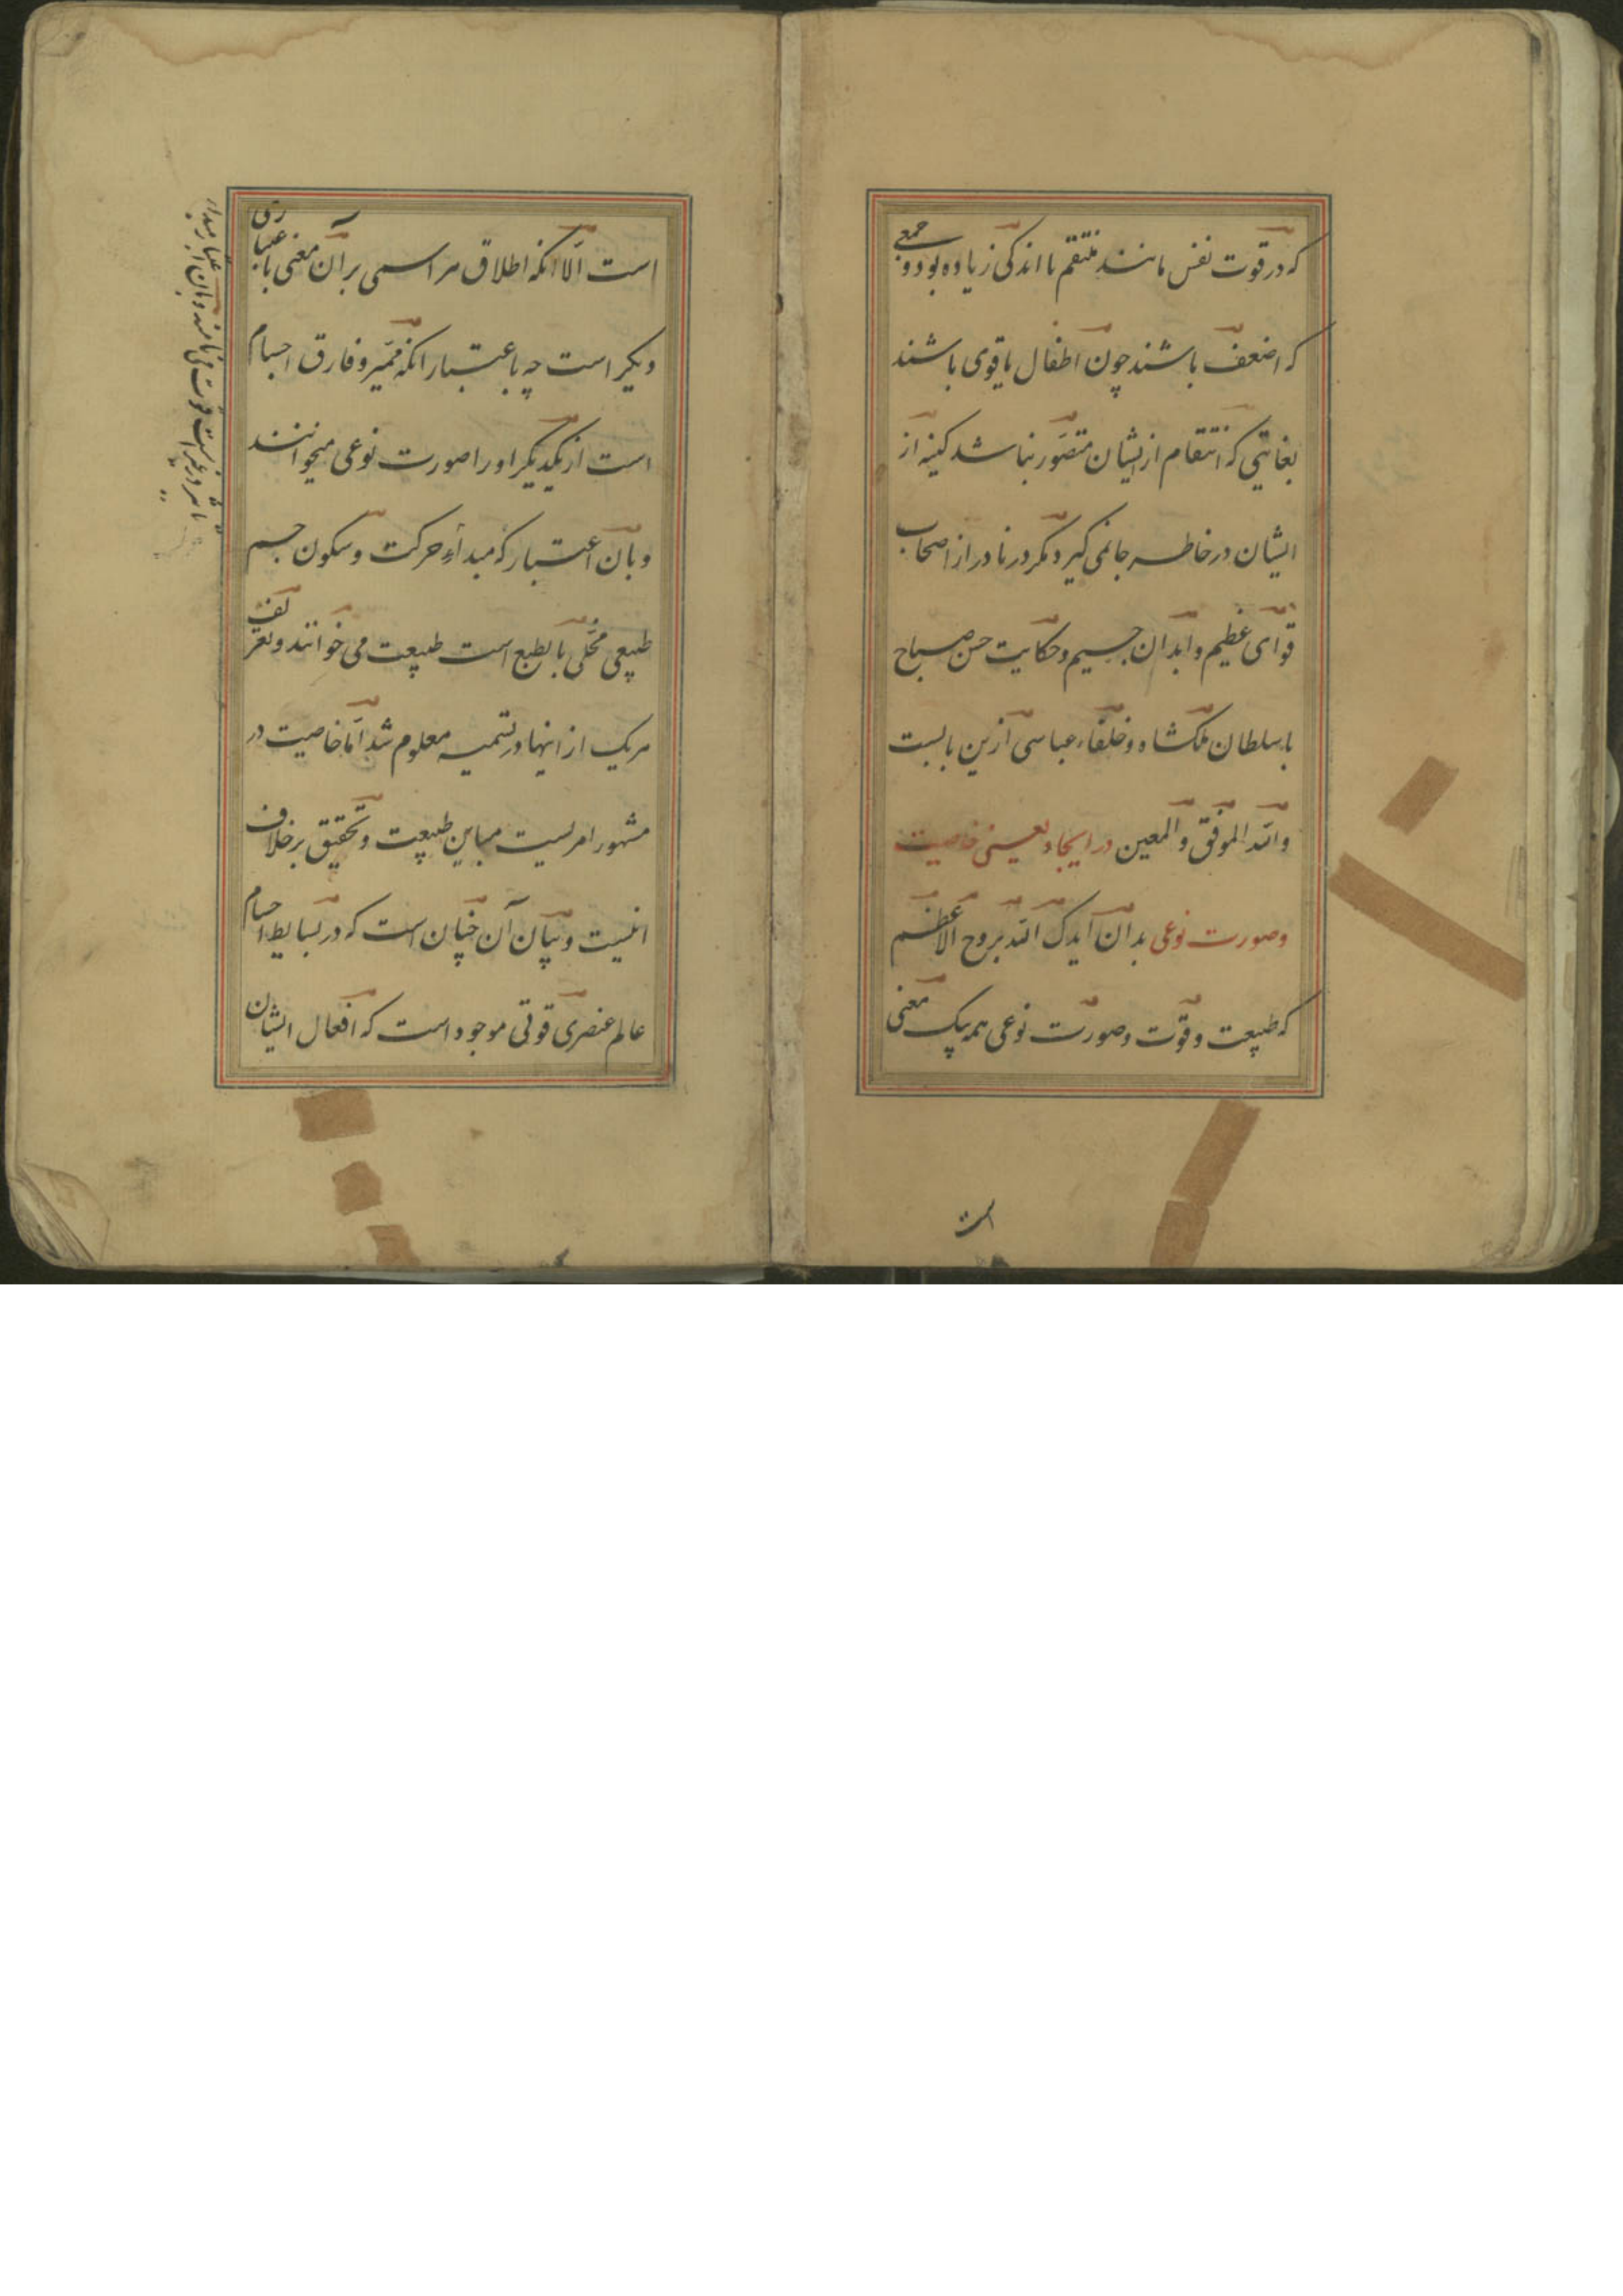 که در قوت نفس مانند منتقم یا اندکی زیاده بود و جمعی
که اضعف باشند چون اطفال یا قوی باشند
بغایتی که انتقام از ایشان متصوّر نباشد کینه از
ایشان در خاطر جا نمی کیرد مکر در نادر از اصحاب
قوای عظیم و ابدان جسیم و حکایت حسن صباح
با سلطان ملکشاه و خلفاء عباسی ازین بابست
والله الموفق والمعین در ایجاد یعنی خاصیت
وصورت نوعی بدان ایدک الله بروح الاعظم
که طبیعت و قوّت و صورت نوعی همه یک معنی
است
است الّا انکه اطلاق هر اسمی بر آن معنی باعتباری
دیکر است چه باعتبار انکه ممیّز و فارق اجسام
است از یکدیکر او را صورت نوعی میخوانند
و بآن اعتبار که مبداء حرکت و سکون جسم
طبیعی محلّی بالطبع است طبیعت می خوانند و تعریف
هریک از اینها در تسمیه معلوم شد امّا خاصیت در
مشهور امریست مباین طبیعت و تحقیق بر خلاف
انست و بیان آن چنان است که در بسایط اجسام
عالم عنصری قوتی موجود است که افعال ایشان
و بآن اعتبار مبداء
تاثیر در غیر است قوت می نامند